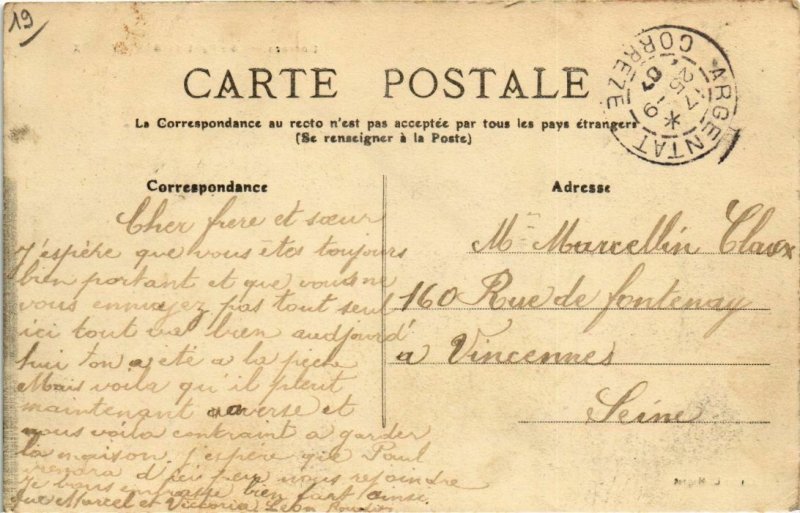 19
CARTE POSTALE
La Correspondance au recto n'est pas acceptée par tous les pays étrangers
(Se renseigner à la Poste)
ARGENTAT
CORREZE
17
25 - 9
Correspondance
Cher frere et sœur
J'espère que vous êtes toujours
bien portant et que vous ne
vous ennuyez pas tout seul
ici tout va bien audjourd'
hui ton a été a la peche
Mais voila qu'il pleut
maintenant averse et
nous voila contraint a garder
la maison j'espère que Paul
viendra d'ici peu nous rejoindre
Je vous embrasse bien fort ainsi
que Marcel et Victoria Leon
Adresse
Mr Marcellin Claux
160 Rue de fontenay
a Vincennes
Seine